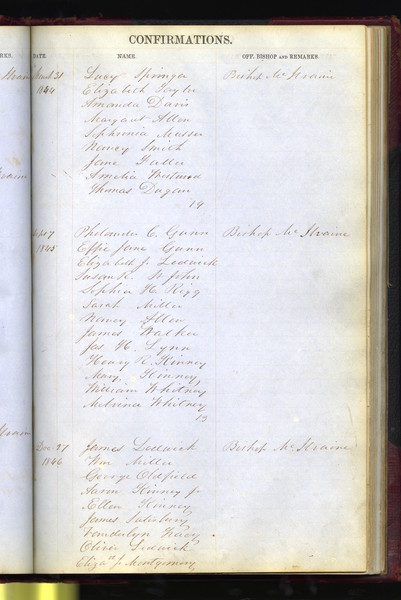 CONFIRMATIONS.
DATE. NAME. OFF. BISHOP AND REMARKS.
March 31 Lucy Springer Bishop McIlvaine
1844 Elizabeth Taylor
Amanda Davis
Margaret Allen
Sophronia Musser
Nancy Smith
Jane Fuller
Amelia
Thomas Dugan
19
7 Philander C. Gunn Bishop McIlvaine
1845 Effie Jane Gunn
Elizabeth J. Lodwick
Susan K. St John
Sophia H. Rigg
Sarah Miller
Nancy Allen
James Walker
Jas H. Lynn
Henry R. Kinney
Mary Kinney
William Whitney
Melvina Whitney
13
Dec 27 James Lodwick Bishop McIlvaine
1846 Wm Miller
George Oldfield
Aaron Kinney Jr
Ellen Kinney
James Salsbury
Tracy
Oliver Lodwick
Elizath J. Montgomery